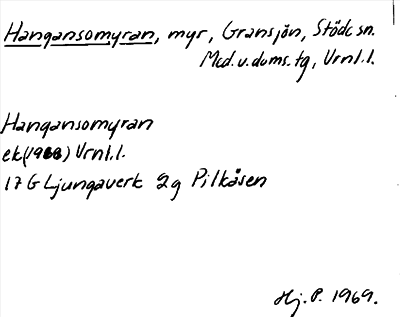 Hangansomyran, myr, Gransjön, Stöde sn.
Med.v.doms.tg, Vrnl.l.
Hangansomyran
ek(1968) Vrnl.l.
17G Ljungaverk 2g Pilkåsen
Hj. P. 1969.